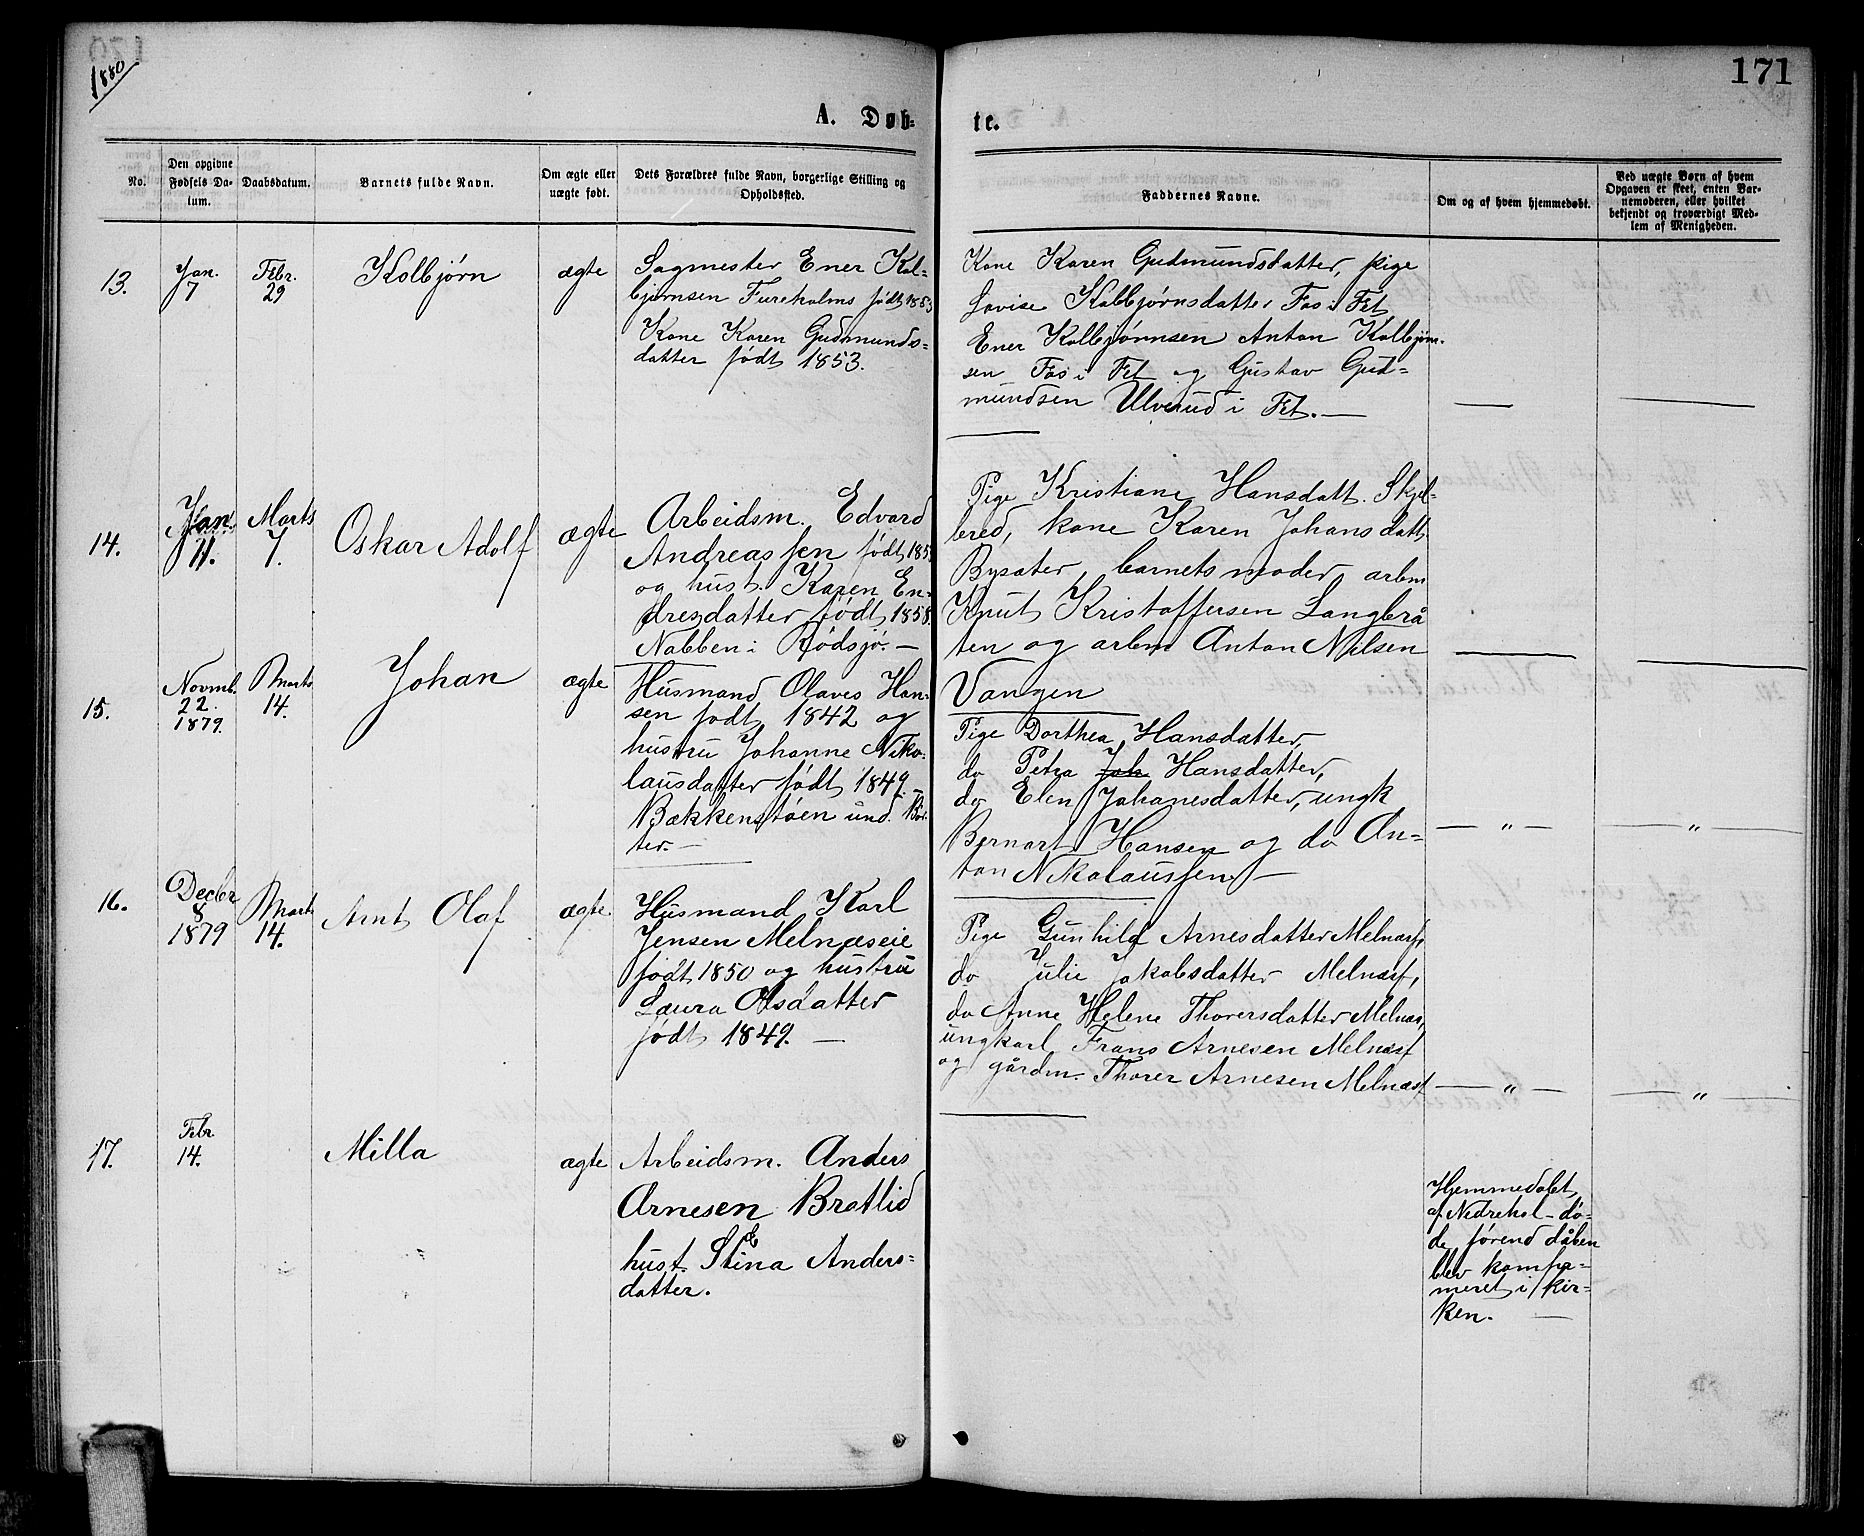 1880
171
A. Døb-
te.
No.
Den opgivne
Fødsels Da-
tum.
Daabsdatum.
Barnets fulde Navn.
Om ægte eller
uægte født.
Dets Forældres fulde Navn, borgerlige Stilling og
Opholdssted.
Faddernes Navne.
Om og af hvem hjemmedøbt.
Ved uægte Børn af hvem
Opgaven er skeet, enten Bar-
nemoderen, eller hvilket
bekjendt og troværdigt Med-
lem af Menigheden.
13.
Jan.
7
Febr.
29
Kolbjørn
ægte
Sagmester Ener Kol-
bjørnsen Fureholms født 1853
Kone Karen Gudmunds-
datter født 1853.
Kone Karen Gudmundsdatter, pige
Lovise Kolbjørnsdatter Fos i Fet
Ener Kolbjørnsen Anton Kolbjørn-
sen Fos i Fet og Gustav Gud=
mundsen Ulverud i Fet. —
14.
Jan.
11.
Marts
7.
Oskar Adolf
ægte
Arbeidsm. Edvard
Andreassen født 185
og hust. Karen En-
dresdatter født 1858.
Nabben i Rødsjø. —
Pige Kristiane Hansdatt. Skjel-
bred, kone Karen Johansdatt.
Bysæter, barnets moder, arbm
Knut Kristoffersen Langbrå
ten og arbm Anton Nilsen
Vangen
15.
Novmb.
22.
1879.
Marts
14.
Johan
ægte
Husmand Olaves Han-
sen født 1842 og
hustru Johanne Niko-
lausdatter født 1849. —
Bækkenstøen und. Bør-
ter. —
Pige Dorthea Hansdatter,
do Petra Joh Hansdatter,
do Elen Johanesdatter, ungk
Bernart Hansen og do An-
ton Nikolaussen —
— " —
— " —
16.
Decbr
8
1879
Marts
14.
Arnt Olaf
ægte
Husmand Karl
Jensen Melnæseie
født 1850 og hustru
Laura Olsdatter
født 1849. —
Pige Gunhild Arnesdatter Melnæs,
do Julie Jakobsdatter Melnæs,
do Anne Helene Thorersdatter Melnæs,
ungkarl Frans Arnesen Melnæs
og gårdm. Thorer Arnesen Melnæs
— " —
— " —
17.
Febr.
14.
Milla
ægte
Arbeidsm. Anders
Arnesen Bratlid
hust. Stina E Anders-
datter.
Hjemmedøbt
af Nedrehol - dø-
de førend dåben
blev konfir-
meret i kir-
ken. —